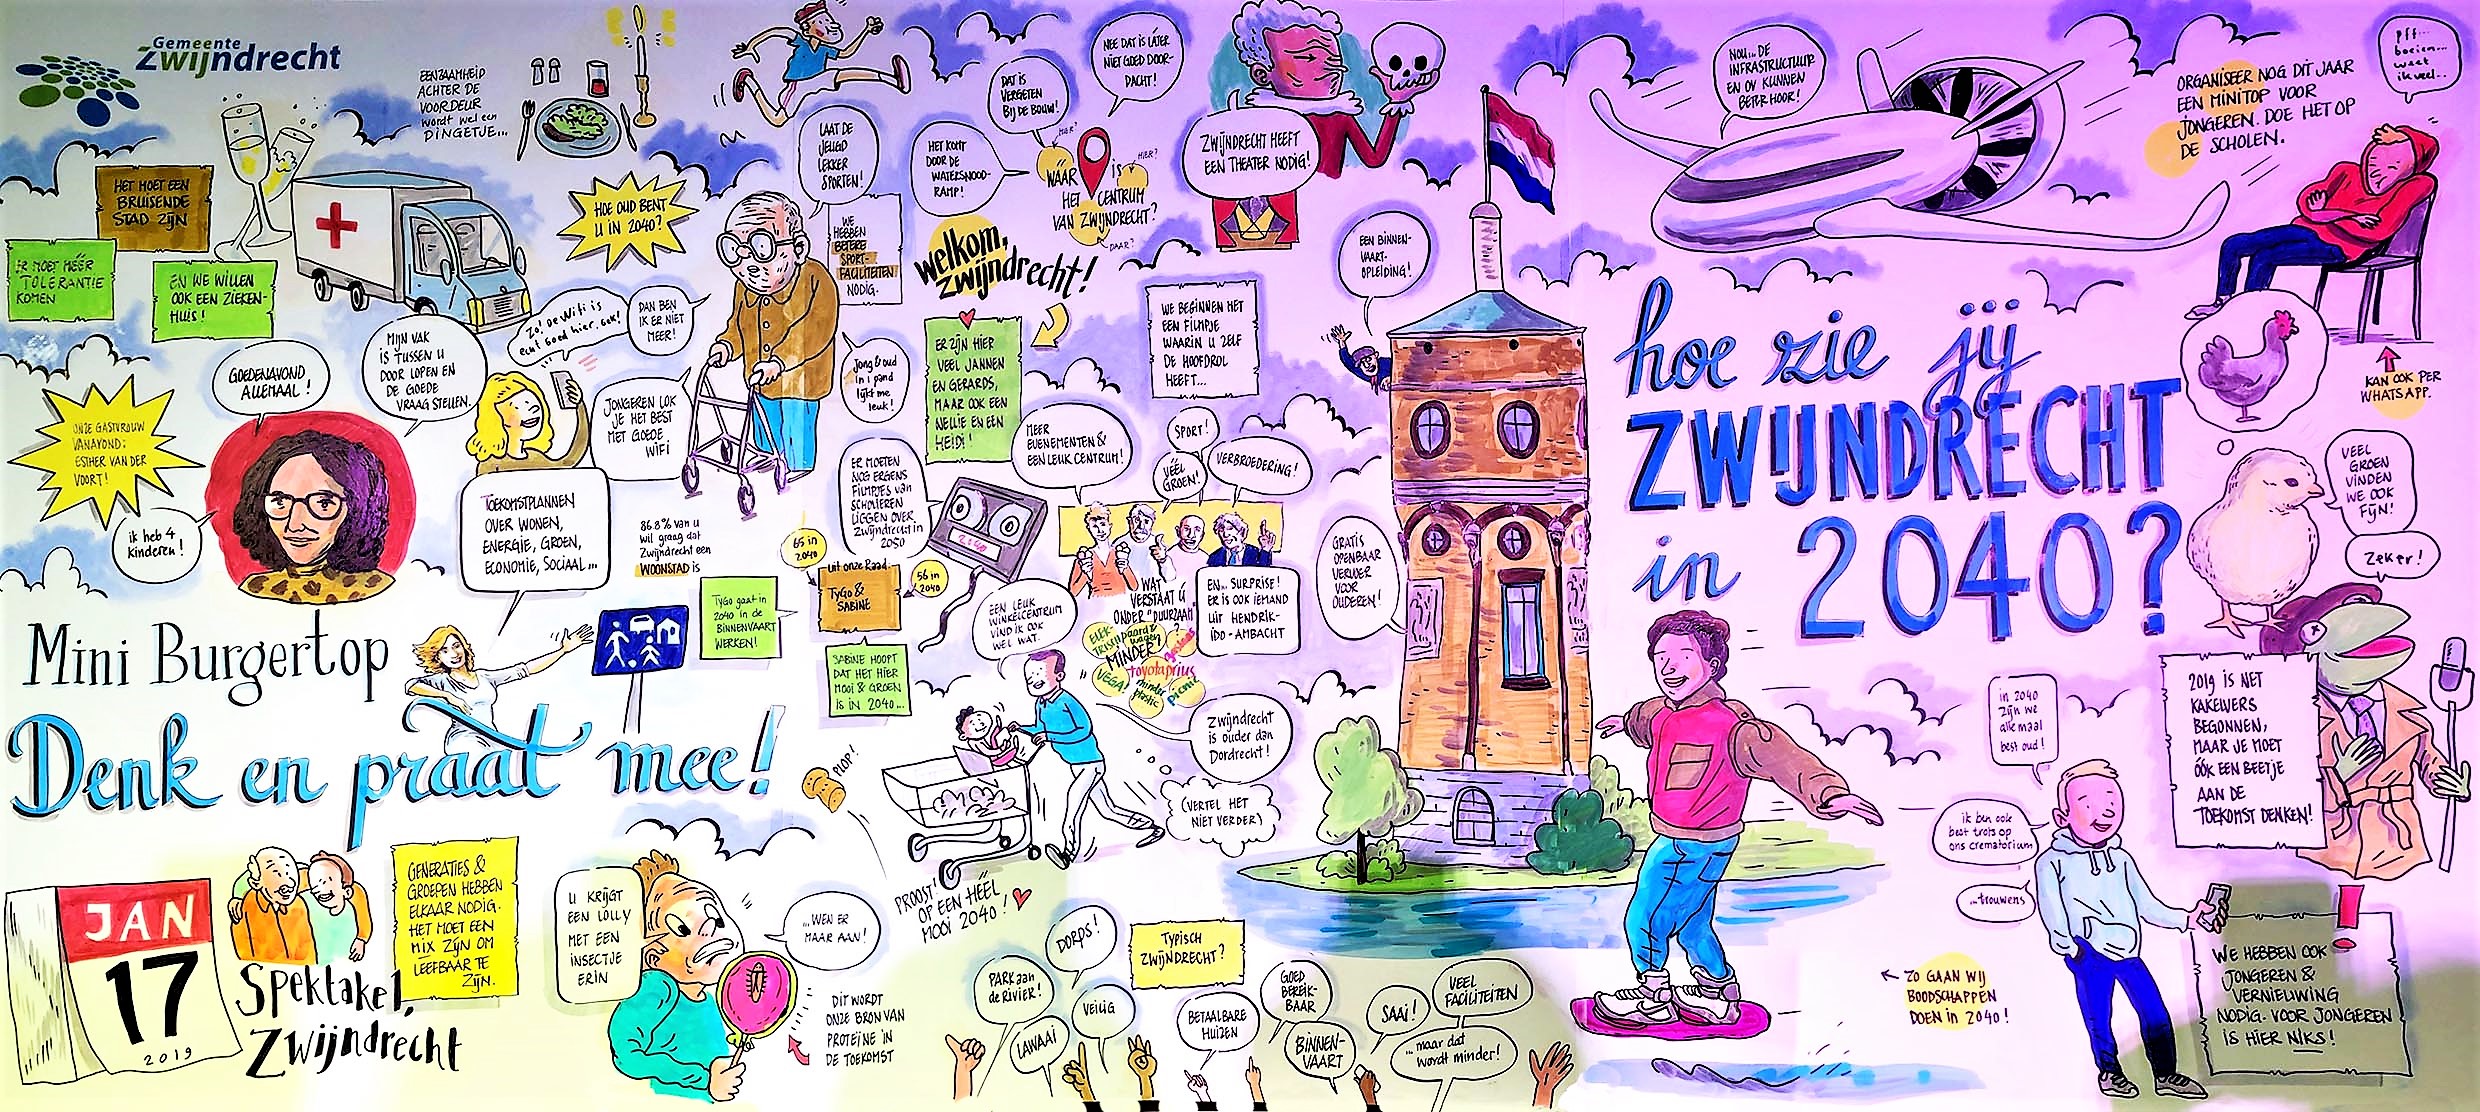 Gemeente
Zwijndrecht
EENZAAMHEID
ACHTER DE
VOORDEUR
wordt wel een
DINGETJE...
HET MOET EEN
BRUISENDE
STAD ZIJN
ER MOET MÉÉR
TOLERANTIE
KOMEN
EN WE WILLEN
OOK EEN ZIEKEN-
HUIS!
HOE OUD BENT
U IN 2040?
DAN BEN
IK ER NIET
MEER!
LAAT DE
JEUGD
LEKKER
SPORTEN!
WE
HEBBEN
BETERE
SPORT-
FACILITEITEN
NODIG.
HET KOMT
DOOR DE
WATERSNOOD-
RAMP!
DAT IS
VERGETEN
BIJ DE BOUW!
NEE DAT IS LÁTER
NIET GOED DOOR-
DACHT!
HIER?
HIER?
WAAR IS
HET CENTRUM
VAN ZWIJNDRECHT?
DAAR?
ZWIJNDRECHT HEEFT
EEN THEATER NODIG!
welkom,
zwijndrecht!
ER ZIJN HIER
VEEL JANNEN
EN GERARDS,
MAAR OOK EEN
NELLIE EN EEN
HEIDI!
WE BEGINNEN MET
EEN FILMPJE
WAARIN U ZELF
DE HOOFDROL
HEEFT...
EEN BINNEN-
VAART-
OPLEIDING!
NOU... DE
INFRASTRUCTUUR
EN OV KUNNEN
BETER HOOR!
ORGANISEER NOG DIT JAAR
EEN MINITOP VOOR
JONGEREN. DOE HET OP
DE SCHOLEN.
pff...
boeien...
weet
ik veel...
KAN OOK PER
WHATSAPP.
hoe zie jij
ZWIJNDRECHT
in 2040?
VEEL
GROEN
VINDEN
WE OOK
FIJN!
Zeker!
2019 IS NET
KAKELVERS
BEGONNEN,
MAAR JE MOET
ÓÓK EEN BEETJE
AAN DE
TOEKOMST DENKEN!
ONZE GASTVROUW
VANAVOND:
ESTHER VAN DER
VOORT!
GOEDENAVOND
ALLEMAAL!
ik heb 4
kinderen!
MIJN VAK
IS TUSSEN U
DOOR LOPEN EN
DE GOEDE
VRAAG STELLEN.
Zo! De Wifi is
echt goed hier, gek!
JONGEREN LOK
JE HET BEST
MET GOEDE
WIFI
Jong & oud
in 1 pand
lijkt me
leuk!
TOEKOMSTPLANNEN
OVER WONEN,
ENERGIE, GROEN,
ECONOMIE, SOCIAAL...
86.8% van u
wil graag dat
Zwijndrecht een
WOONSTAD is
ER MOETEN
NOG ERGENS
FILMPJES van
SCHOLIEREN
LIGGEN OVER
Zwijndrecht in
2050
65 in
2040
uit onze Raad:
TYGO &
SABINE
56 in
2040
TYGO gaat in
2040 in de
BINNENVAART
WERKEN!
SABINE HOOPT
DAT HET HIER
MOOI & GROEN
IS IN 2040...
MEER
EVENEMENTEN &
EEN LEUK CENTRUM!
SPORT!
VÉÉL
GROEN!
VERBROEDERING!
EEN LEUK
WINKELCENTRUM
VIND IK OOK
WEL WAT.
WAT
VERSTAAT U
ONDER "DUURZAAM"?
ELEK-
TRISCH
paard &
wagen
MINDER
gasloos
VEGA!
toyota prius
minder
plastic
Picnic
EN... SURPRISE!
ER IS OOK IEMAND
UIT HENDRIK-
IDO-AMBACHT
GRATIS
OPENBAAR
VERVOER
VOOR
OUDEREN!
Zwijndrecht
is ouder dan
Dordrecht!
(VERTEL HET
NIET VERDER)
Mini Burgertop
Denk en praat mee!
JAN
17
2019
Spektakel,
Zwijndrecht
GENERATIES &
GROEPEN HEBBEN
ELKAAR NODIG.
HET MOET EEN
MIX ZIJN OM
LEEFBAAR TE
ZIJN.
U KRIJGT
EEN LOLLY
MET EEN
INSECTJE
ERIN
...WEN ER
MAAR AAN!
DIT WORDT
ONZE BRON VAN
PROTEÏNE IN
DE TOEKOMST
PLOP!
PROOST!
OP EEN HÉÉL
MOOI 2040!
PARK aan
de RIVIER!
DORPS!
LAWAAI
VEILIG
TYPISCH
ZWIJNDRECHT?
BETAALBARE
HUIZEN
GOED
BEREIK-
BAAR
BINNEN-
VAART
SAAI!
VEEL
FACILITEITEN
...maar dat
wordt minder!
in 2040
zijn we
allemaal
best oud!
ik ben ook
best trots op
ons crematorium
...trouwens
ZO GAAN WIJ
BOODSCHAPPEN
DOEN in 2040!
WE HEBBEN OOK
JONGEREN &
VERNIEUWING
NODIG. VOOR JONGEREN
IS HIER NIKS!